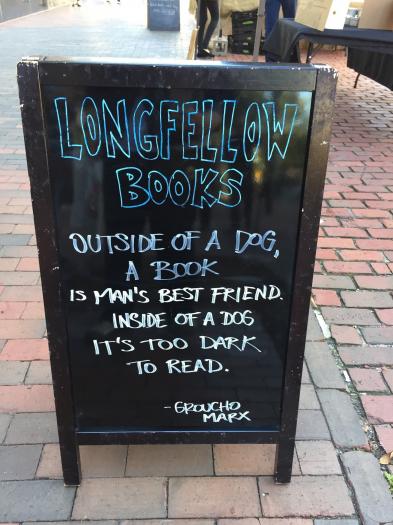 LONGFELLOW
BOOKS
OUTSIDE OF A DOG,
A BOOK
IS MAN'S BEST FRIEND.
INSIDE OF A DOG
IT'S TOO DARK
TO READ.
- GROUCHO
MARX